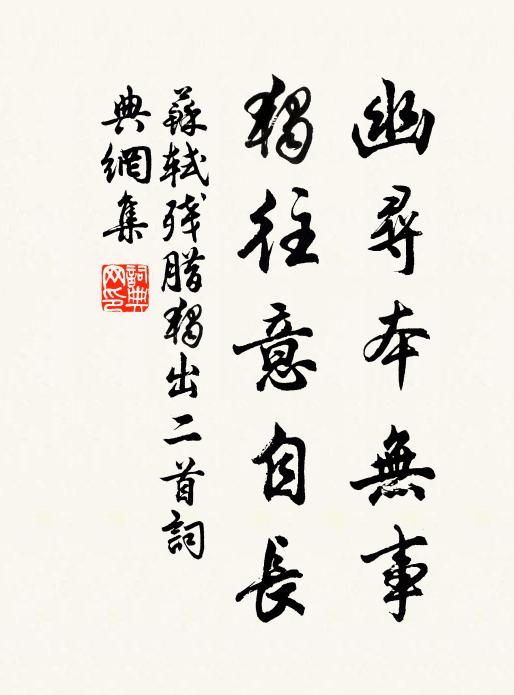 幽尋本無事
獨往意自長
蘇軾残腊獨出二首詞
典網集
詞典
网印